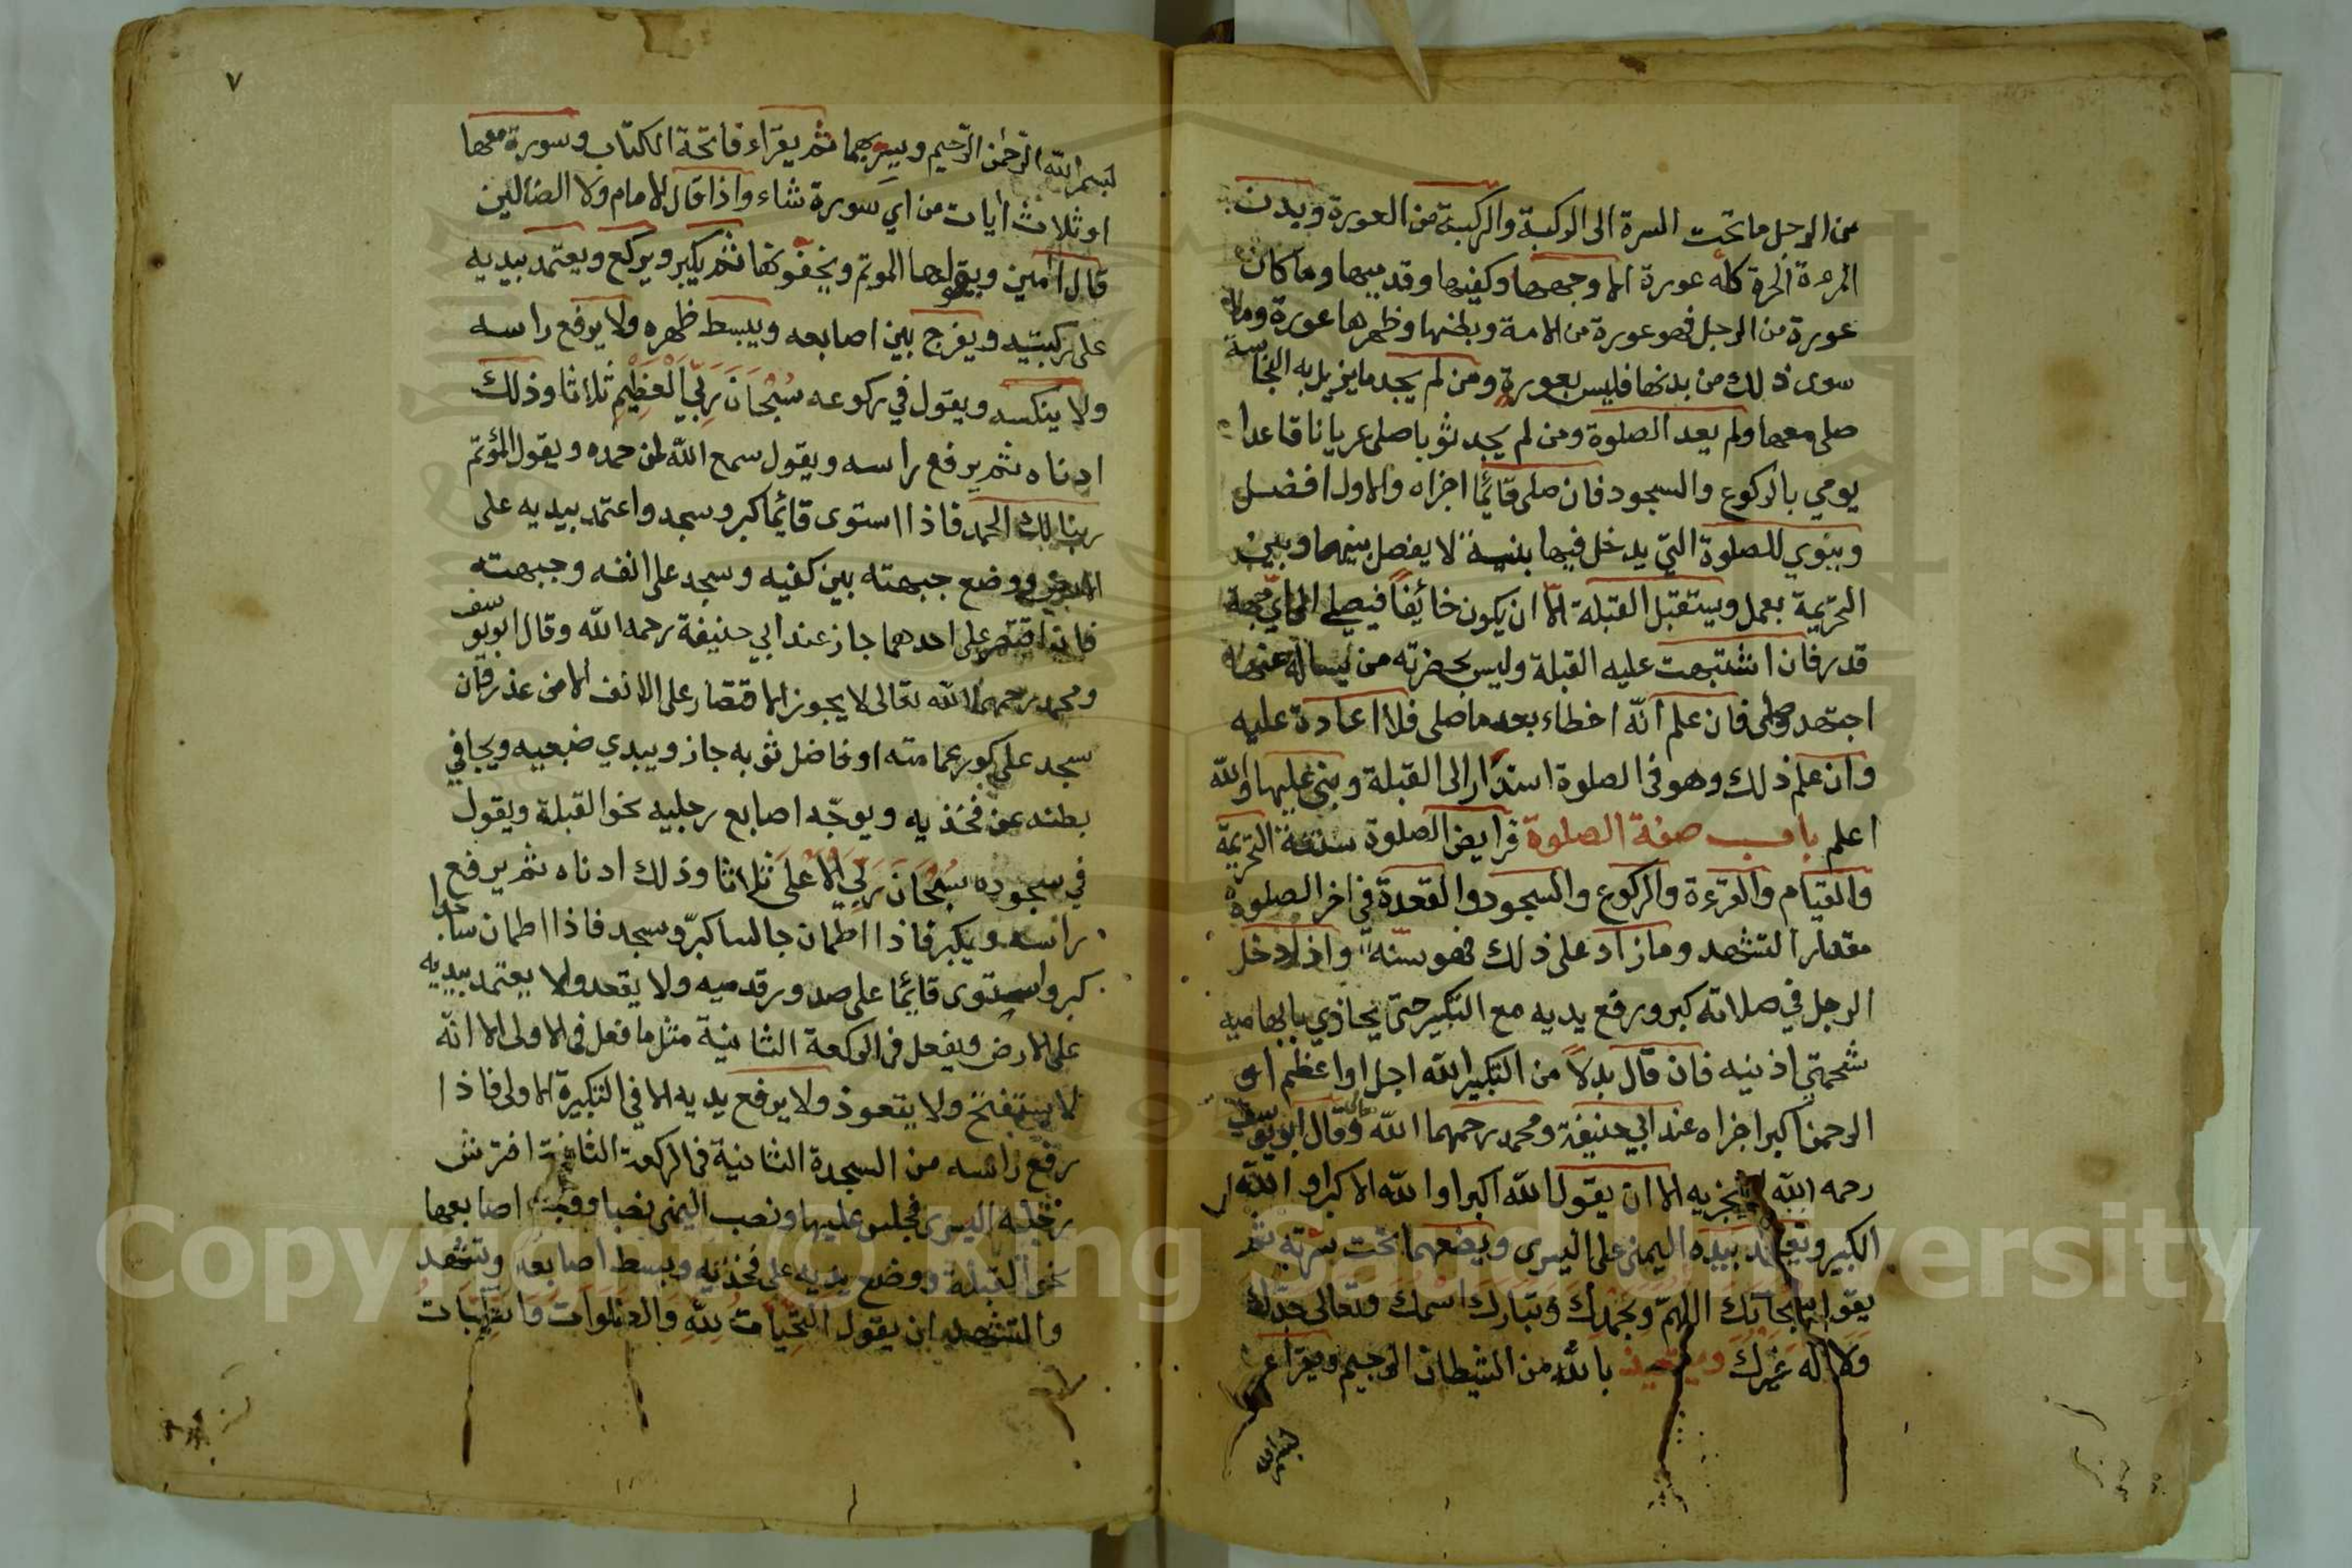 من الرجل ما تحت السرة الى الركبة والركبة من العورة وبدن
المرءة الحرة كله عورة الا وجهها وكفيها وقدميها وما كان
عورة من الرجل فهو عورة من الامة وبطنها وظهرها عورة وما
سوى ذلك من بدنها فليس بعورة ومن لم يجد ما يزيل به النجاسة
صلى معها ولم يعد الصلوة ومن لم يجد ثوبا صلى عريانا قاعدا
يومي بالركوع والسجود فان صلى قائما اجزاه والاول افضل
وينوي للصلوة التي يدخل فيها بنية لا يفصل بينهما وبين
التحريمة بعمل ويستقبل القبلة الا ان يكون خائفا فيصلي الى اي جهة
قدر فان اشتبهت عليه القبلة وليس بحضرته من يساله عنها
اجتهد وصلى فان علم انه اخطاء بعد ما صلى فلا اعادة عليه
وان علم ذلك وهو في الصلوة استدار الى القبلة وبنى عليها والله
اعلم باب صفة الصلوة فرايض الصلوة ستة التحريمة
والقيام والقرءة والركوع والسجود والقعدة في اخر الصلوة
مقدار التشهد وما زاد على ذلك فهو سنة واذا دخل
الرجل في صلاته كبر ورفع يديه مع التكبير حتى يحاذي بابهاميه
شحمتي اذنيه فان قال بدلا من التكبير الله اجل او اعظم او
الرحمن اكبر اجزاه عند ابي حنيفة ومحمد رحمهما الله وقال ابو يوسف
رحمه الله يجزيه الا ان يقول الله اكبر او الله الاكبر او الله
الكبير ويعتمد بيده اليمنى على اليسرى ويضعهما تحت سرته ثم
يقول سبحانك اللهم وبحمدك وتبارك اسمك وتعالى جدك
ولا اله غيرك ويستعيذ بالله من الشيطان الرجيم ويقرا
٧
بسم الله الرحمن الرحيم ويسر بهما ثم يقراء فاتحة الكتاب وسورة معها
او ثلاث ايات من اي سورة شاء واذا قال الامام ولا الضالين
قال امين ويقولها الموتم ويخفونها ثم يكبر ويركع ويعتمد بيديه
على ركبتيه ويفرج بين اصابعه ويبسط ظهره ولا يرفع راسه
ولا ينكسه ويقول في ركوعه سُبْحَانَ رَبِّيَ الْعَظِيْمِ ثلاثا وذلك
ادناه ثم يرفع راسه ويقول سمع الله لمن حمده ويقول المؤتم
ربنا لك الحمد فاذا استوى قائما كبر وسجد واعتمد بيديه على
الارض ووضع جبهته بين كفيه وسجد على انفه وجبهته
فان اقتصر على احدهما جاز عند ابي حنيفة رحمه الله وقال ابو يوسف
ومحمد رحمهما الله تعالى لا يجوز الاقتصار على الانف الا من عذر فان
سجد على كور عمامته او فاضل ثوبه جاز ويبدي ضبعيه ويجافي
بطنه عن فخذيه ويوجه اصابع رجليه نحو القبلة ويقول
في سجوده سُبْحَانَ رَبِّيَ الْاَعْلَى ثلاثا وذلك ادناه ثم يرفع
راسه ويكبر فاذا اطمان جالسا كبر وسجد فاذا اطمان ساجدا
كبر واستوى قائما على صدور قدميه ولا يقعد ولا يعتمد بيديه
على الارض ويفعل في الركعة الثانية مثل ما فعل في الاولى الا انه
لا يستفتح ولا يتعوذ ولا يرفع يديه الا في التكبيرة الاولى فاذا
رفع راسه من السجدة الثانية في الركعة الثانية افترش
رجليه اليسرى فجلس عليها ونصب اليمنى نصبا ووجه اصابعها
نحو القبلة ووضع يديه على فخذيه وبسط اصابعه وتشهد
والتشهد ان يقول التَّحِيَّاتُ لِلّٰهِ وَالصَّلَوَاتُ وَالطَّيِّبَاتُ
Copyright © King Saud University